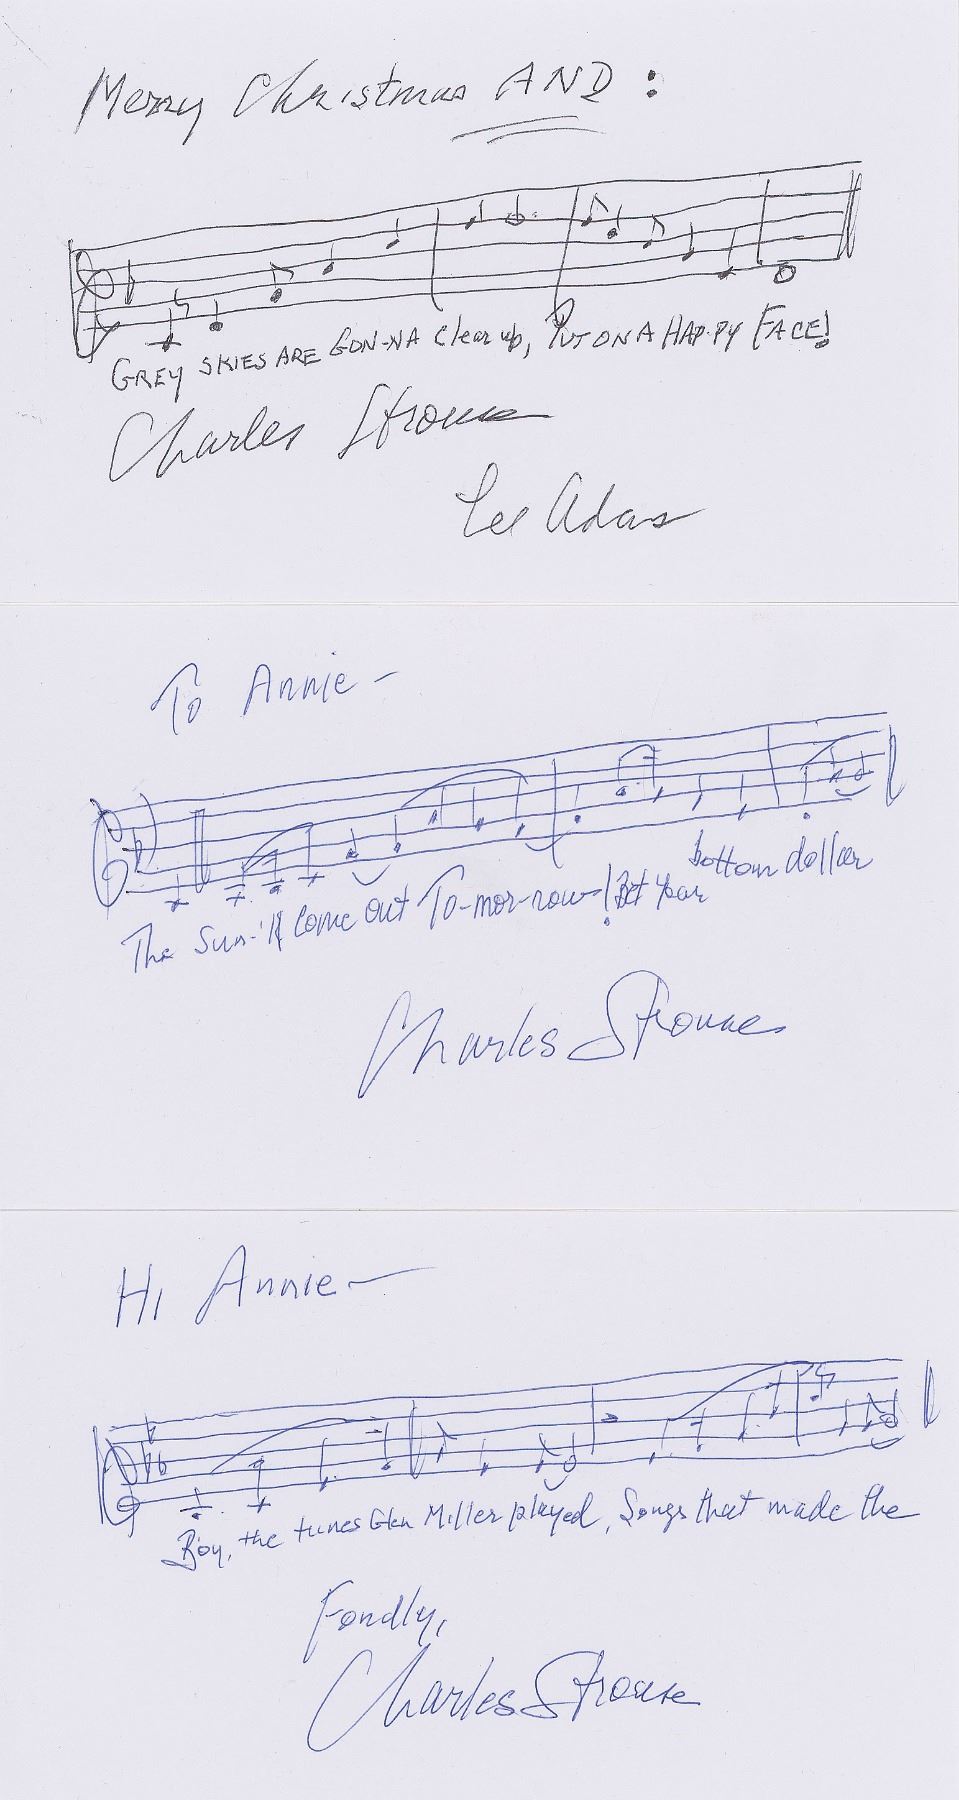 Merry Christmas AND:
GREY SKIES ARE GON-NA Clear up, PUT ON A HAP-PY FACE!
Charles Strouse
Lee Adams
To Annie -
The Sun-'ll come out To-mor-row! Bet your bottom dollar
Charles Strouse
Hi Annie -
Boy, the tunes Glen Miller played, Songs that made the
Fondly,
Charles Strouse